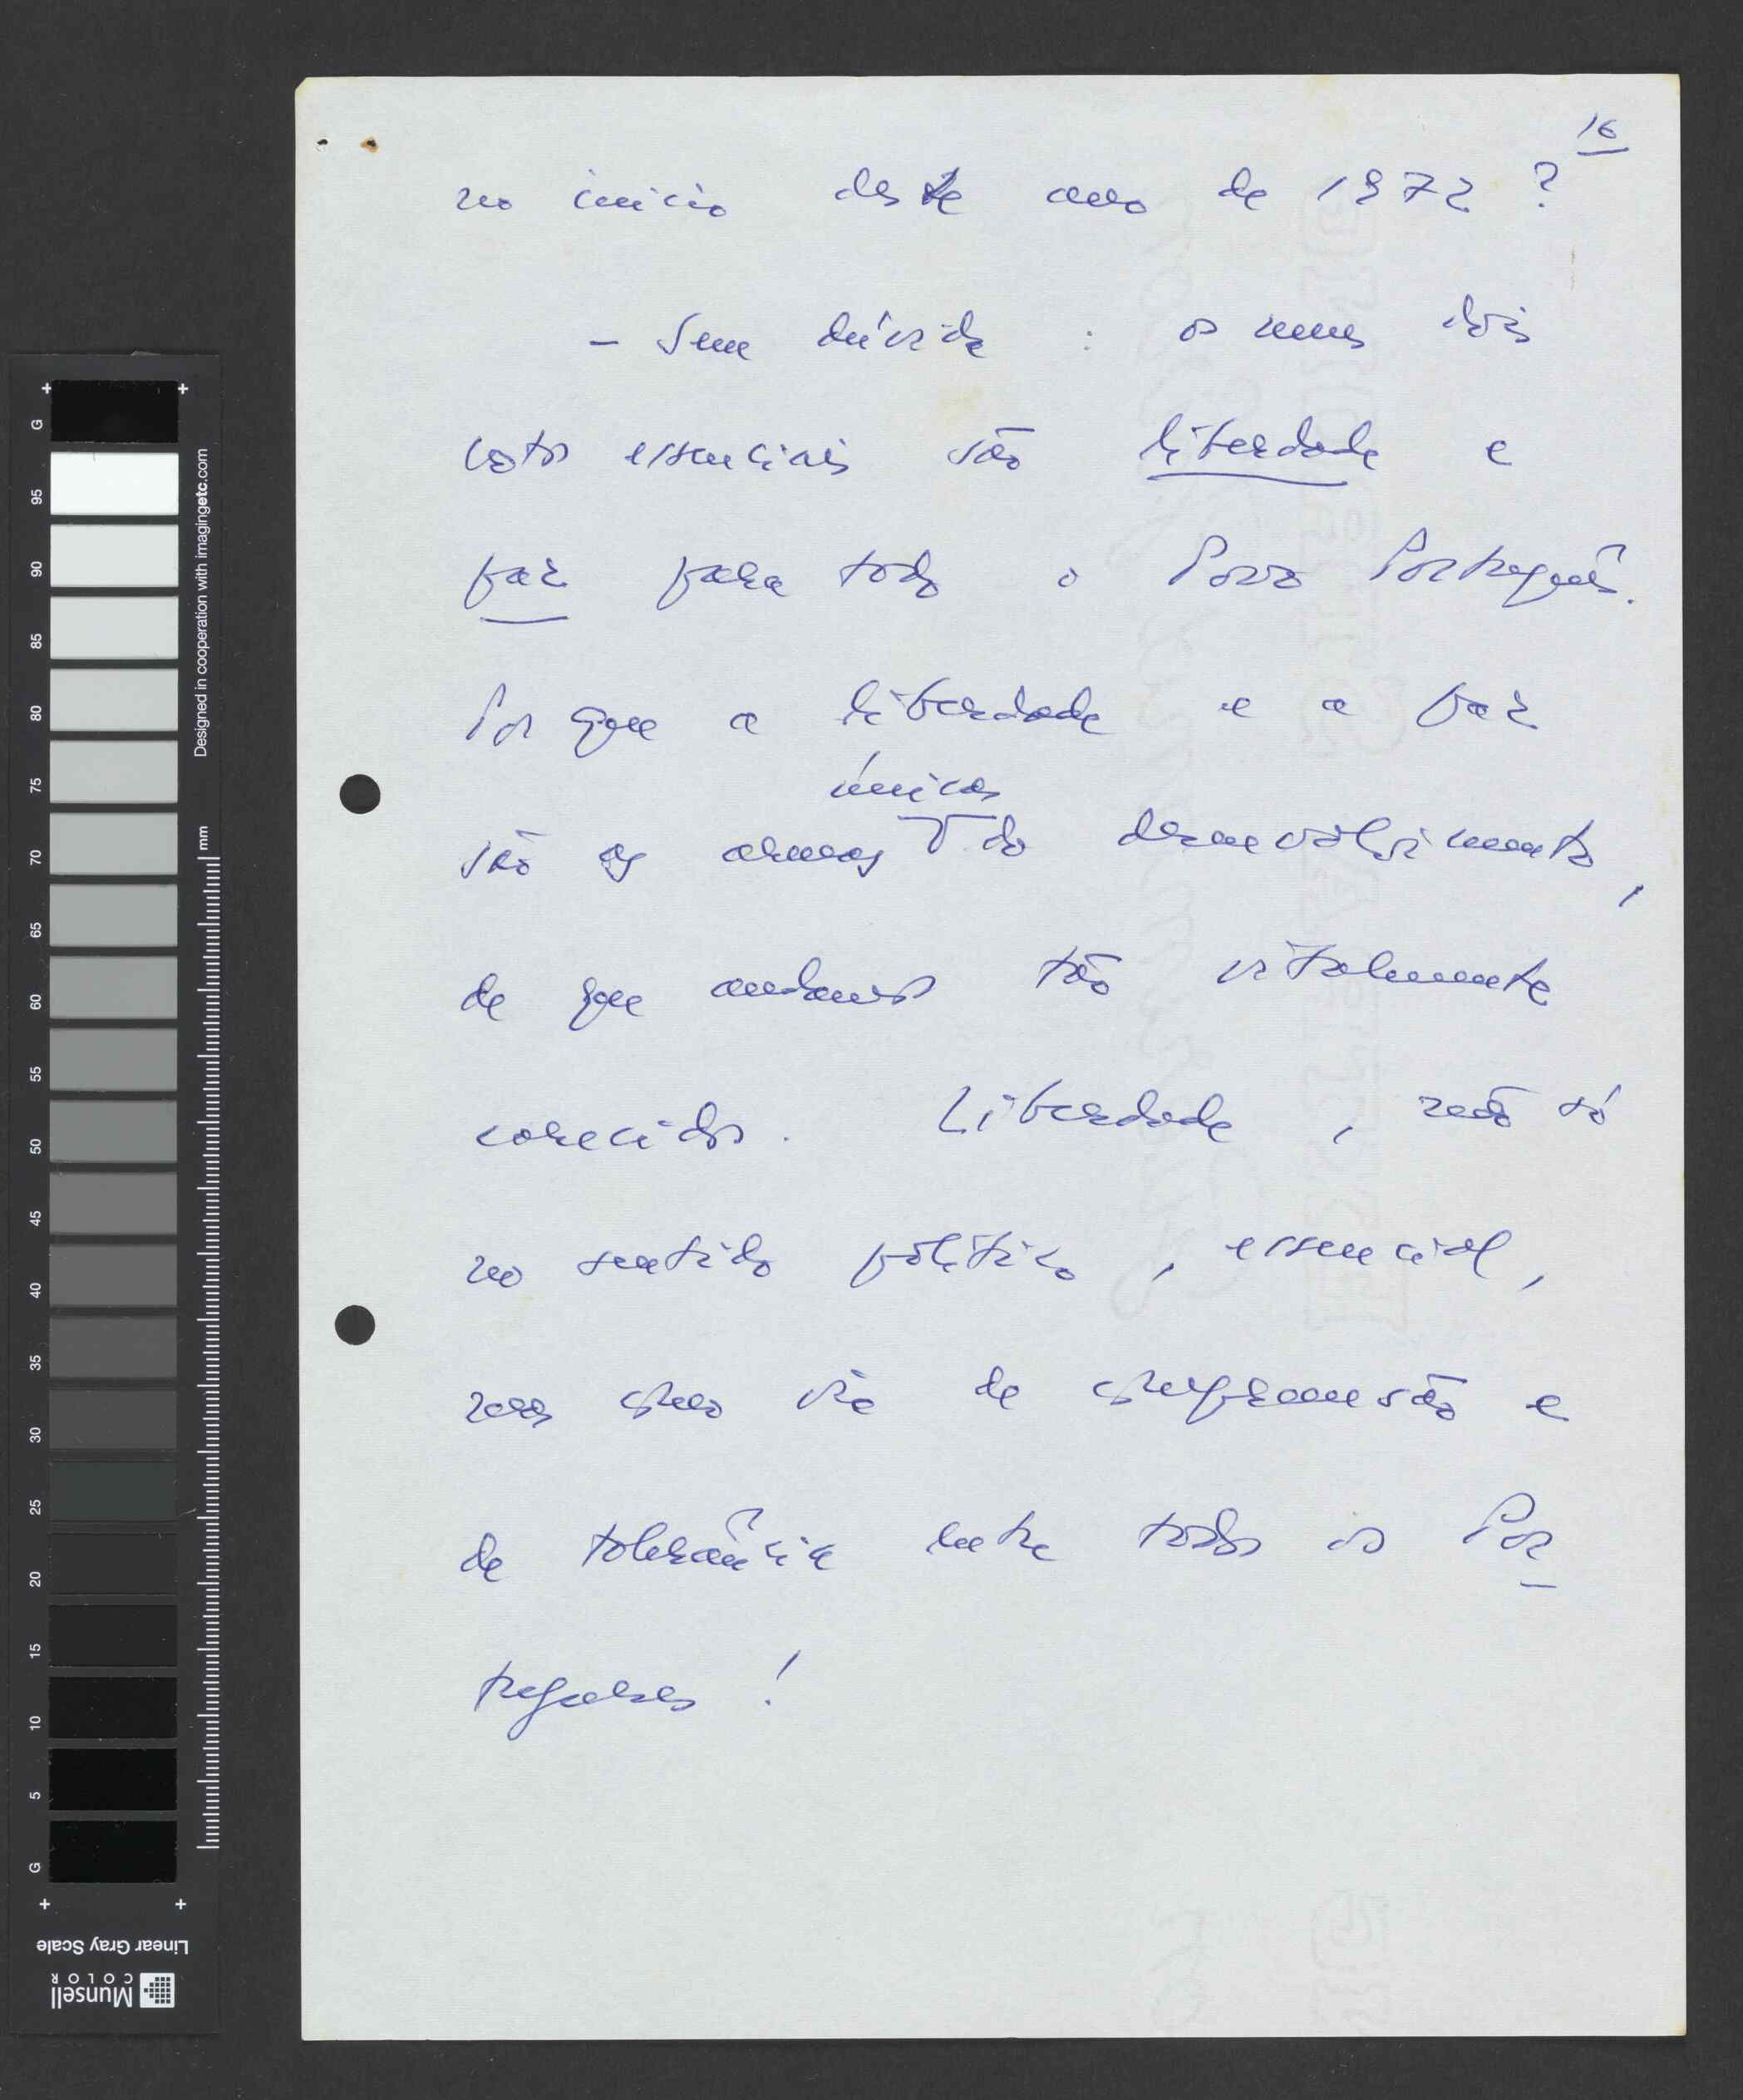 16
no início deste ano de 1972 ?
– Sem dúvida : os meus dois
votos essenciais são liberdade e
paz para todo o Povo Português.
Porque a liberdade e a paz
únicas
são as armas do desenvolvimento,
de que andamos tão vitalmente
carecidos. Liberdade, não só
no sentido político, essencial,
mas como via de compreensão e
de tolerância entre todos os Por
tugueses !
G
95
90
85
80
75
70
65
60
55
50
45
40
35
30
25
20
15
10
5
G
mm
Designed in cooperation with imagingetc.com
Linear Gray Scale
Munsell
COLOR